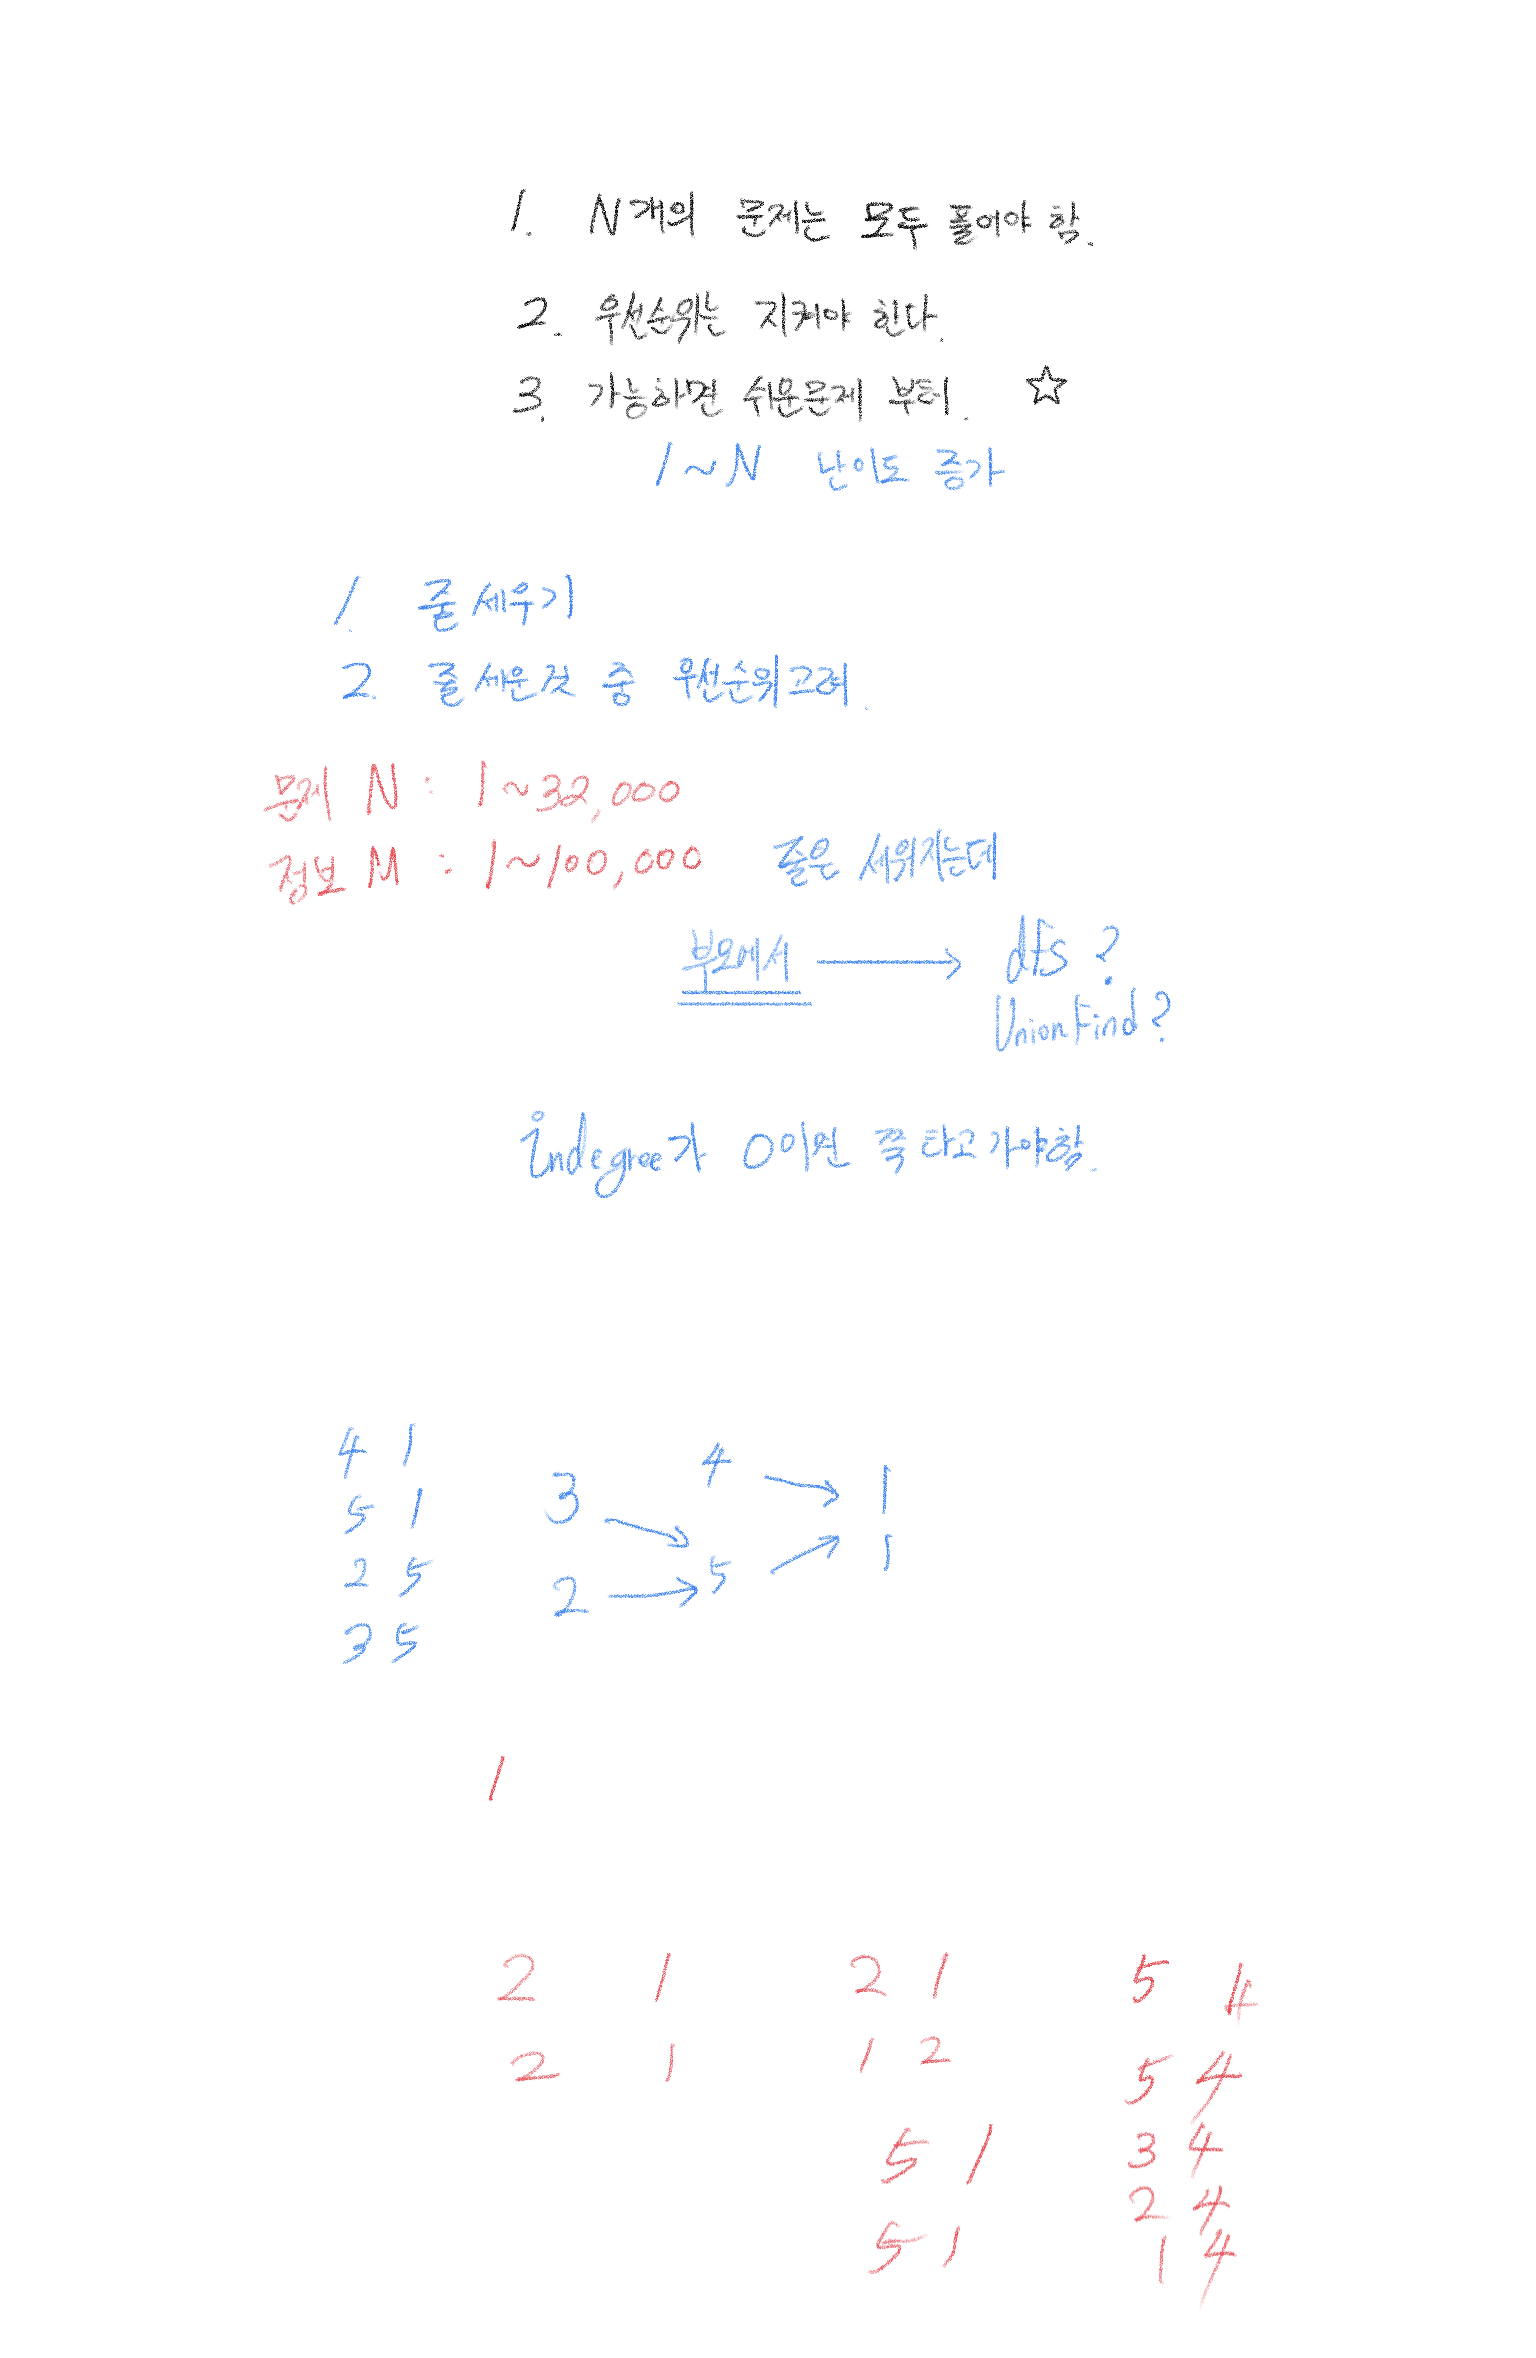 1. N개의 문제는 모두 풀어야 함.
2. 우선순위는 지켜야 한다.
3. 가능하면 쉬운문제 부터. ☆
1~N 난이도 증가
1. 줄 세우기
2. 줄 세운것 중 우선순위고려.
문제 N : 1~32,000
정보 M : 1~100,000 줄은 세워지는데
부모에서 → dfs ?
UnionFind?
indegree가 0이면 쭉 타고 가야함.
4 1
5 1
2 5
3 5
3 4 → 1
2 → 5 → 1
1
2 1 2 1 5 4
2 1 1 2 5 4
5 1 3 4
2 4
5 1 1 4